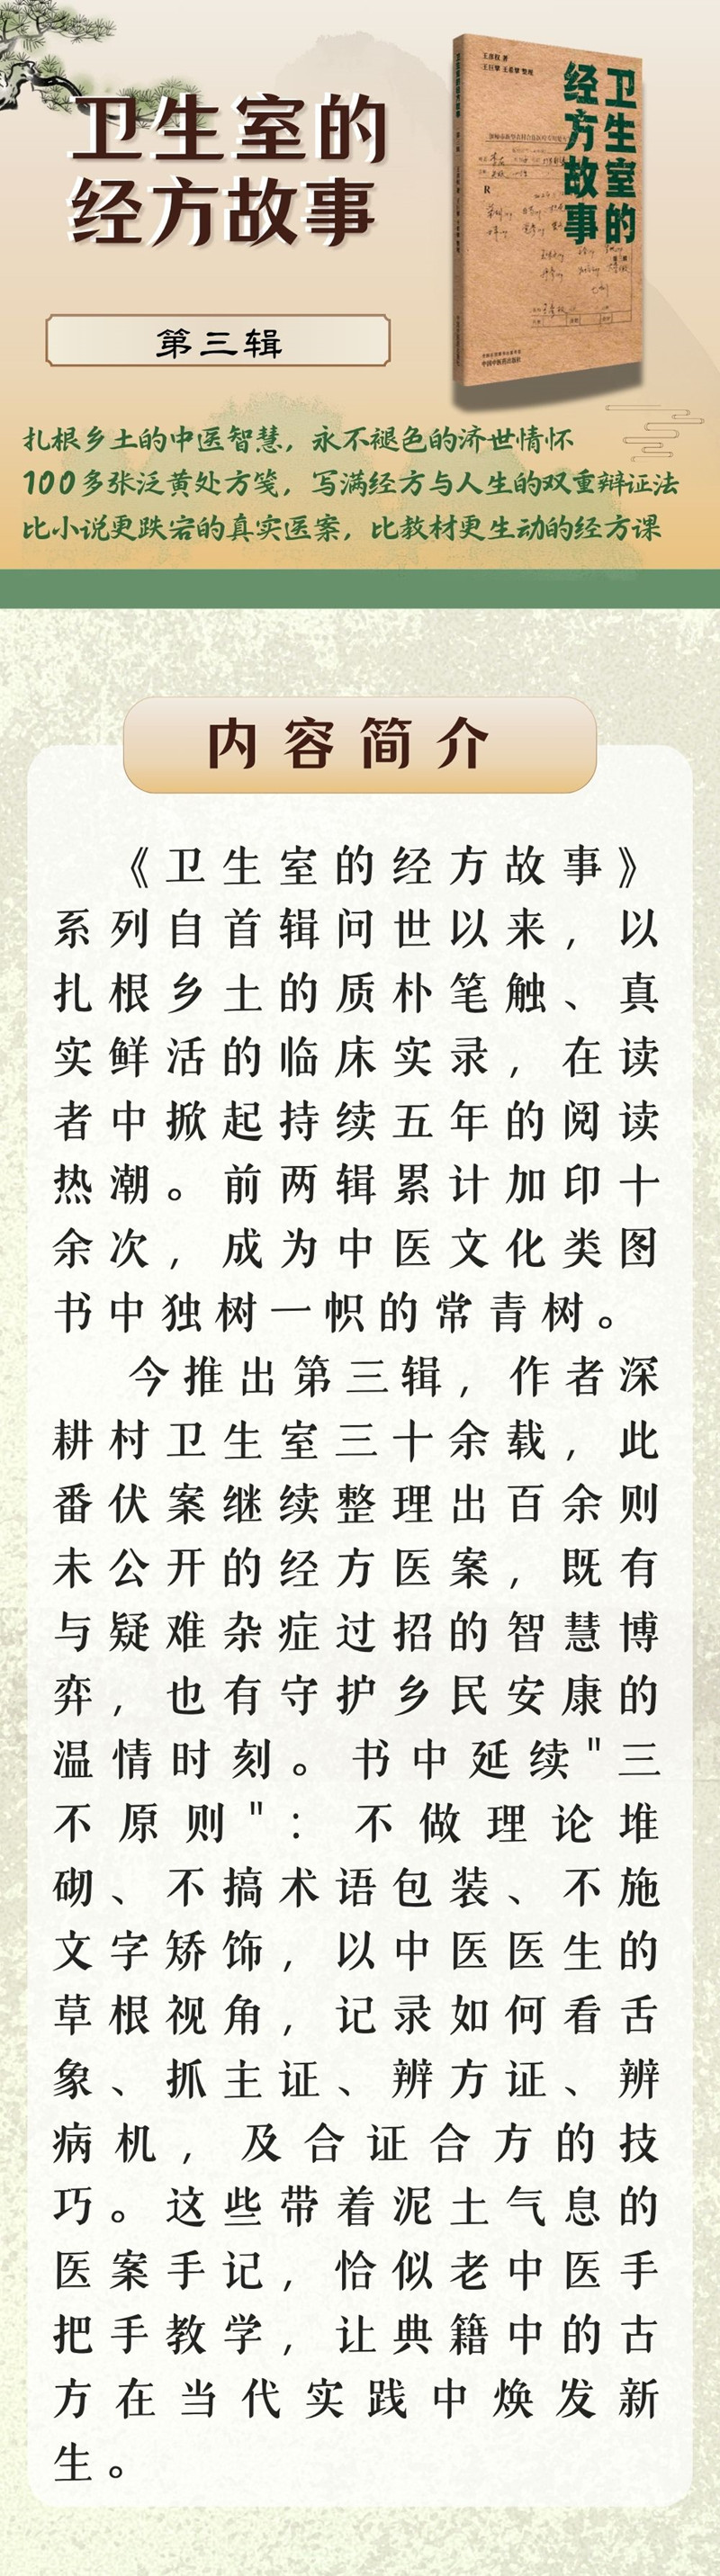 卫生室的
经方故事
第三辑
王彦权 著
卫生室的
经方故事
R
中国中医药出版社
扎根乡土的中医智慧，永不褪色的济世情怀
100多张泛黄处方笺，写满经方与人生的双重辩证法
比小说更跌宕的真实医案，比教材更生动的经方课
内容简介
《卫生室的经方故事》
系列自首辑问世以来，以
扎根乡土的质朴笔触、真
实鲜活的临床实录，在读
者中掀起持续五年的阅读
热潮。前两辑累计加印十
余次，成为中医文化类图
书中独树一帜的常青树。
今推出第三辑，作者深
耕村卫生室三十余载，此
番伏案继续整理出百余则
未公开的经方医案，既有
与疑难杂症过招的智慧博
弈，也有守护乡民安康的
温情时刻。书中延续"三
不原则"：不做理论堆
砌、不搞术语包装、不施
文字矫饰，以中医医生的
草根视角，记录如何看舌
象、抓主证、辨方证、辨
病机，及合证合方的技
巧。这些带着泥土气息的
医案手记，恰似老中医手
把手教学，让典籍中的古
方在当代实践中焕发新
生。